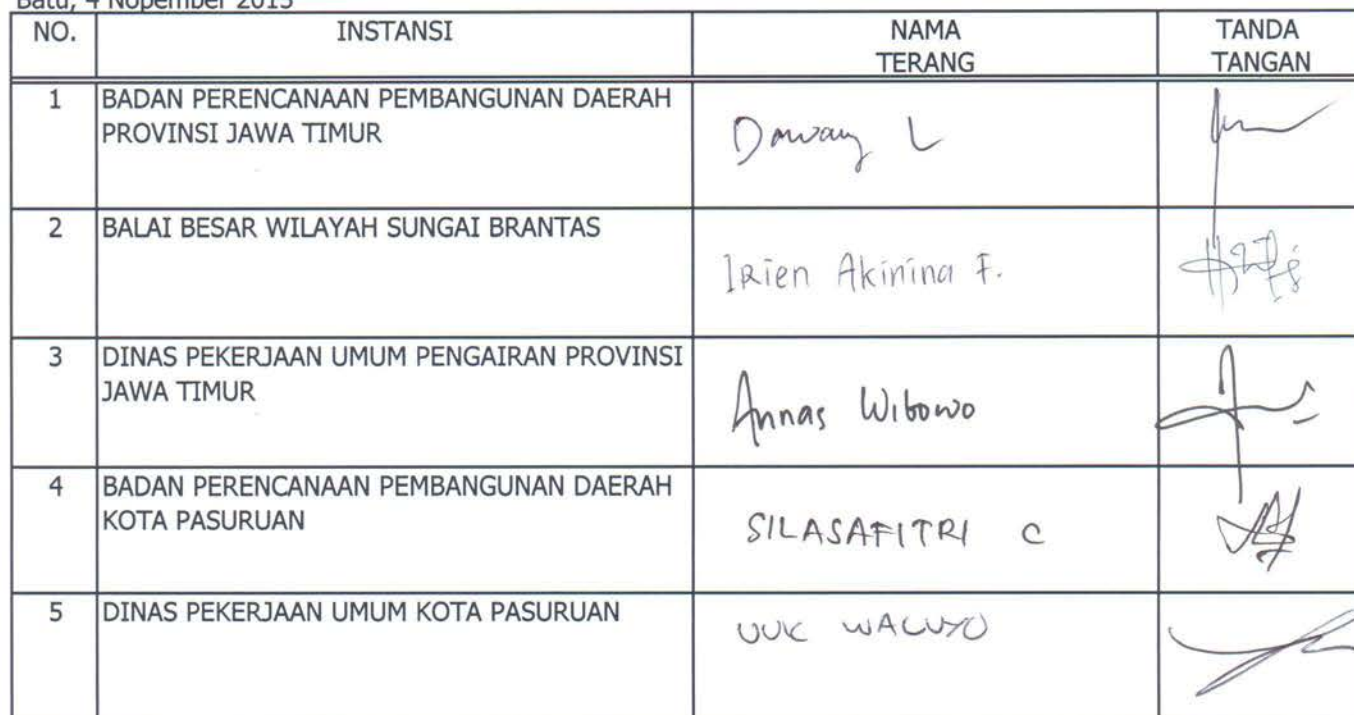 Batu, 4 Nopember 2013
NO. INSTANSI NAMA TERANG TANDA TANGAN
1 BADAN PERENCANAAN PEMBANGUNAN DAERAH
PROVINSI JAWA TIMUR
Dawang L
2 BALAI BESAR WILAYAH SUNGAI BRANTAS
Irien Akinina F.
3 DINAS PEKERJAAN UMUM PENGAIRAN PROVINSI
JAWA TIMUR
Annas Wibowo
4 BADAN PERENCANAAN PEMBANGUNAN DAERAH
KOTA PASURUAN
SILASAFITRI C
5 DINAS PEKERJAAN UMUM KOTA PASURUAN
UUK WALUYO